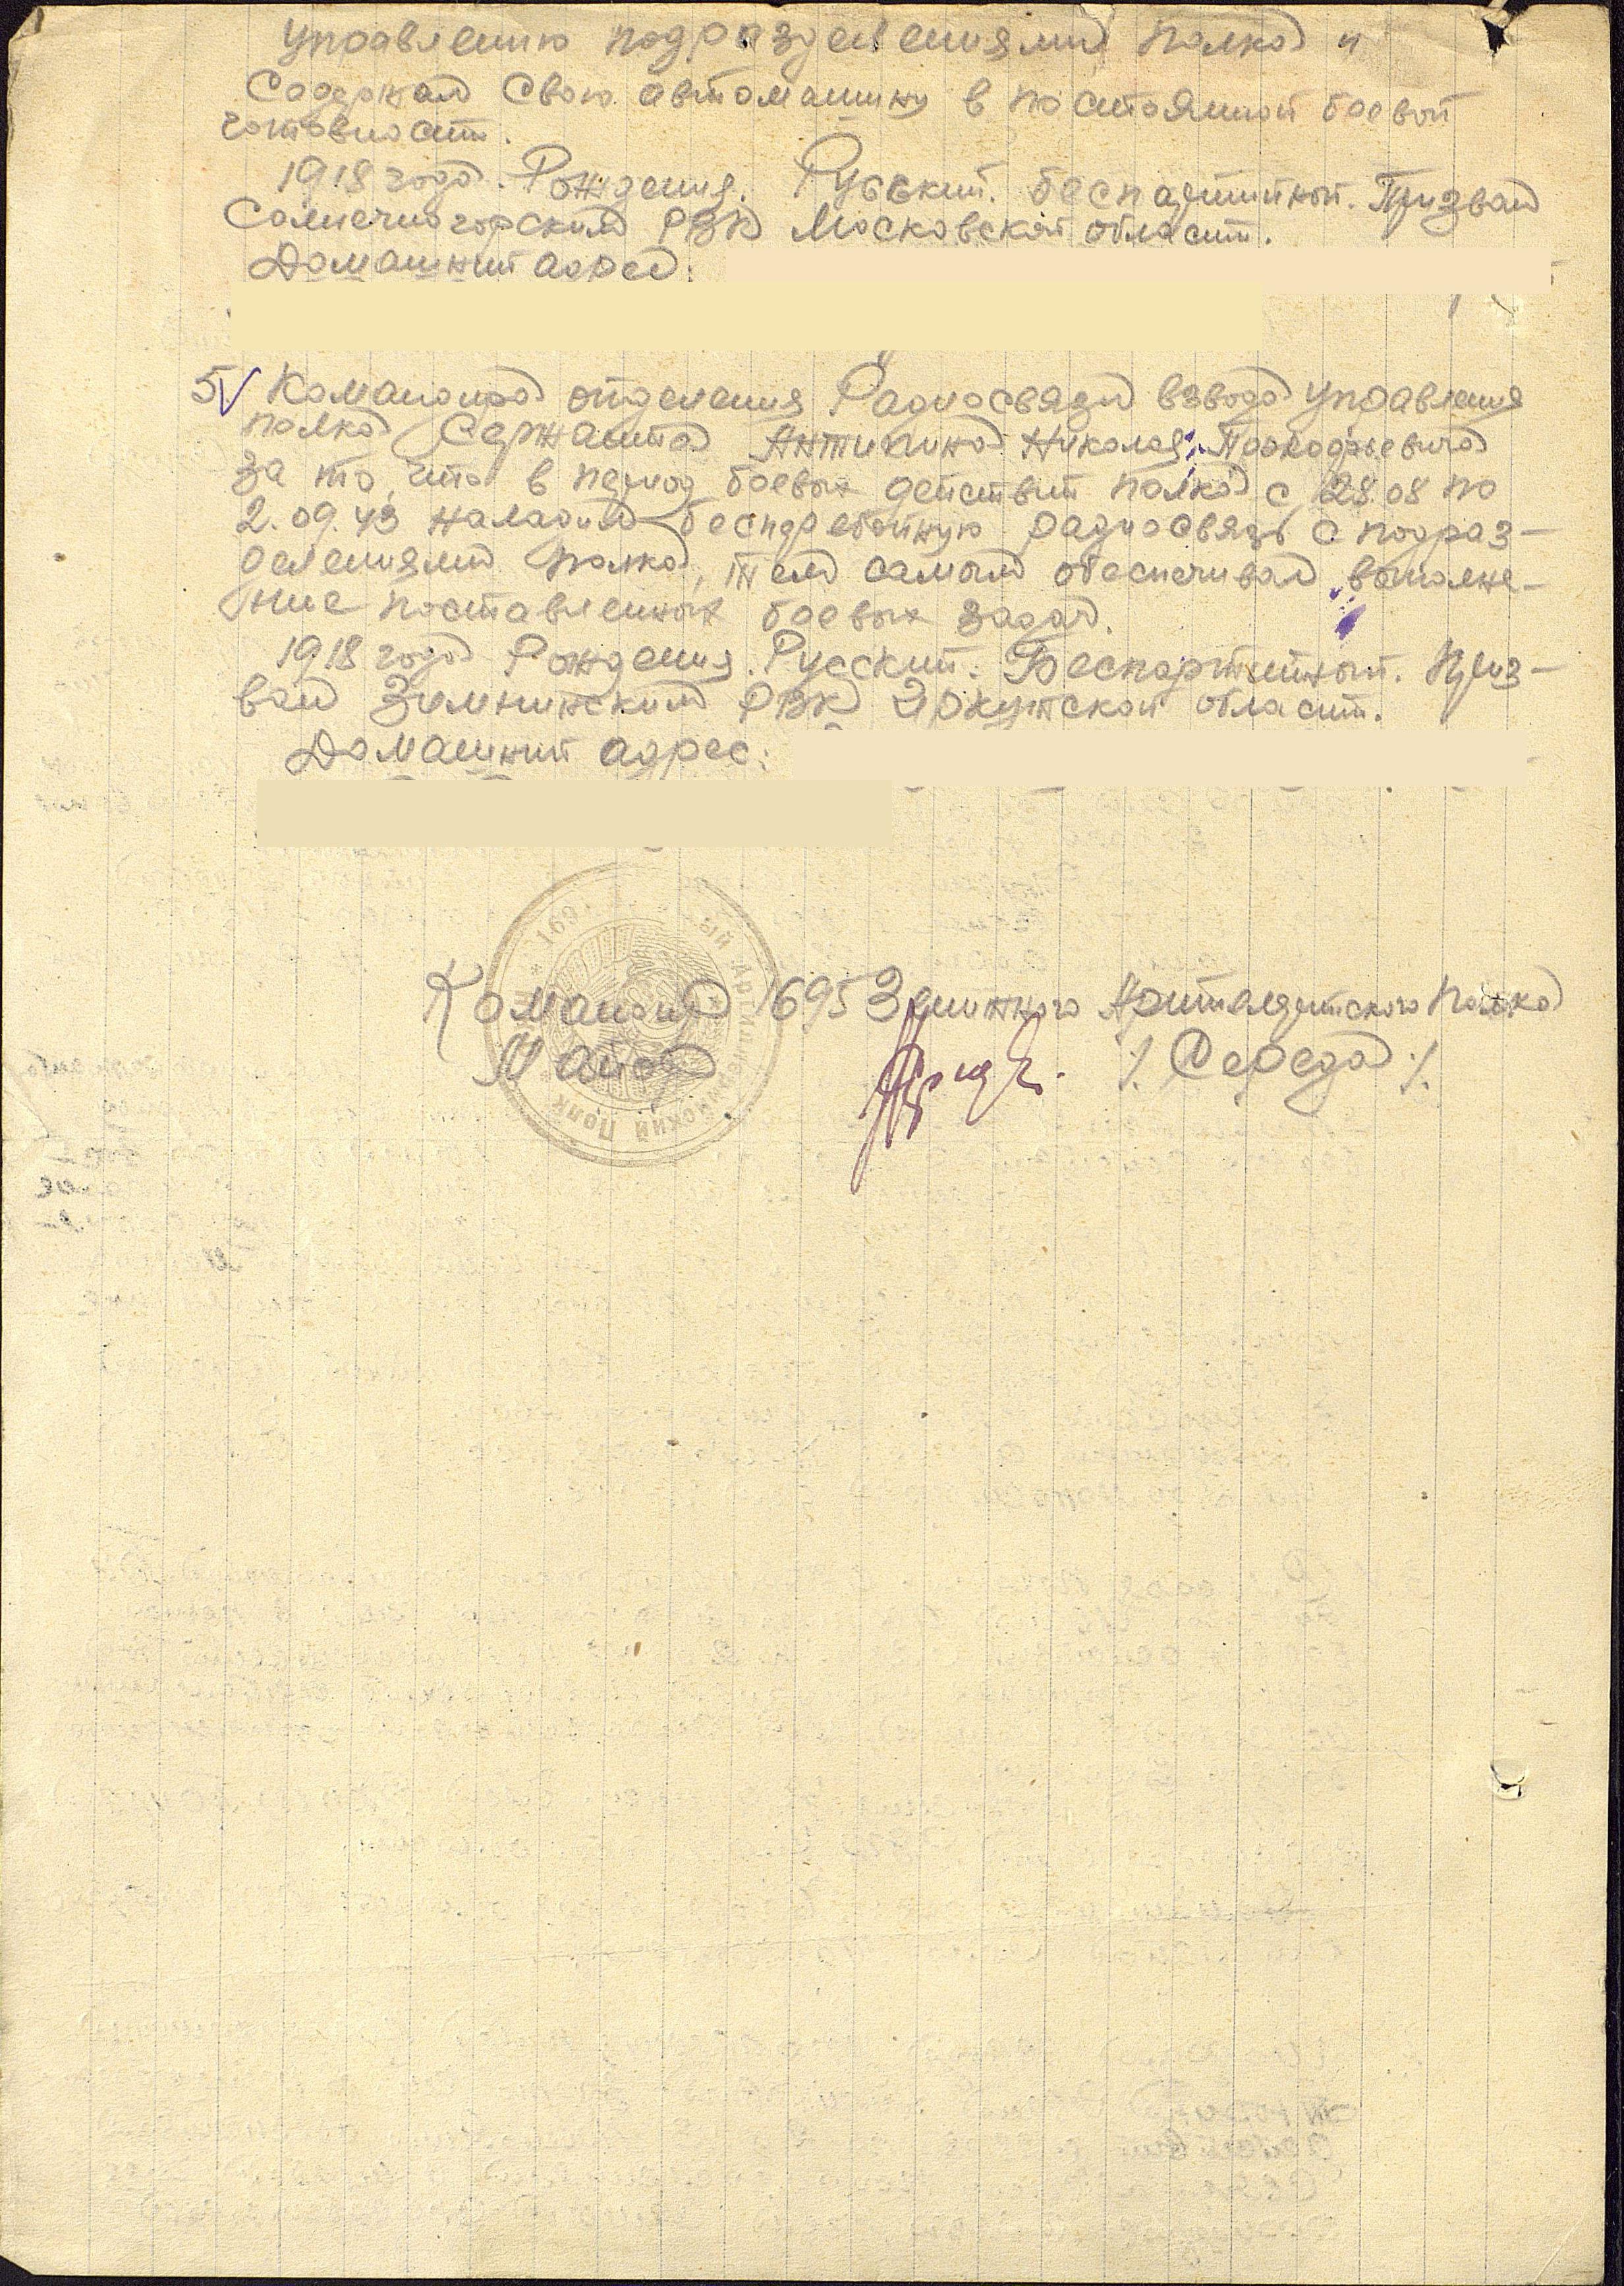 управлению подразделениями полка и
Содержал Свою автомашину в постоянной боевой
готовности.
1918 года. Рождения. Руський. беспартийный. Призван
Солнечногорским РВК Московской области.
Домашний адрес:
5 V Командира отделения Радиосвязи взвода управления
полка Сержанта Антипина Николая Прокофьевича
За то, что в период боевых действий полка с 28.08 по
2.09.43 наладил бесперебойную радиосвязь с подраз-
делениями полка, тем самым обеспечивал выполне-
ние поставленных боевых задач.
1918 года Рождения. Русский. Беспартийный. Приз-
ван Зиминским РВК Иркутской области.
Домашний адрес:
* 169 ный Артиллерийский Полк * НКО *
Командир 1695 Зенитного Артиллерийского Полка
Майор /. Середа ./.